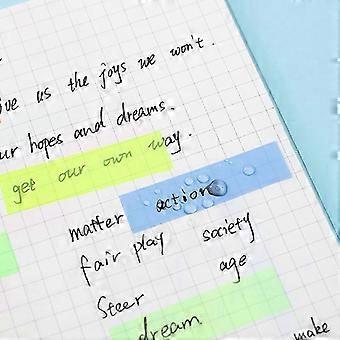 ive us the joys we won't.
ur hopes and dreams.
gee our own way.
matter action
fair play society
Steer age
dream
make